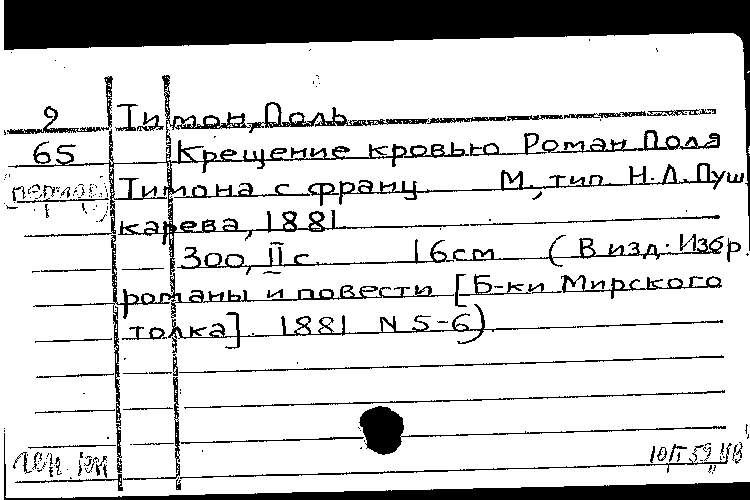 9 Тимон, Поль
65 Крещение кровью Роман Поля
Тимона с франц М., тип Н.Л. Пуш
карева, 1881
300, II с. 16см (В изд: Избр.
романы и повести [Б-ки Мирского
толка]. 1881 N 5-6)
10/I 59